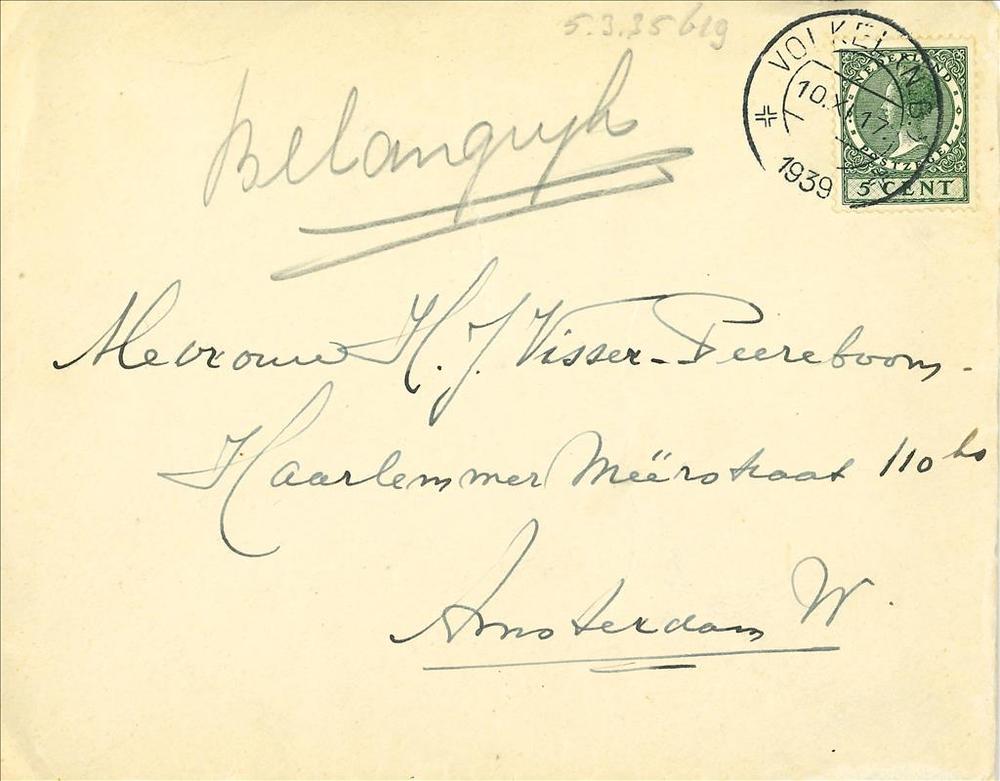 5.3.35 b19
VOLKEL (N.B.)
10.XI.17.
1939
NEDERLAND
POSTZEGEL
5 CENT
Belangryk
Mevrouw H. J. Visser-Peereboom.
Haarlemmer Meërstraat 110 hs
Amsterdam W